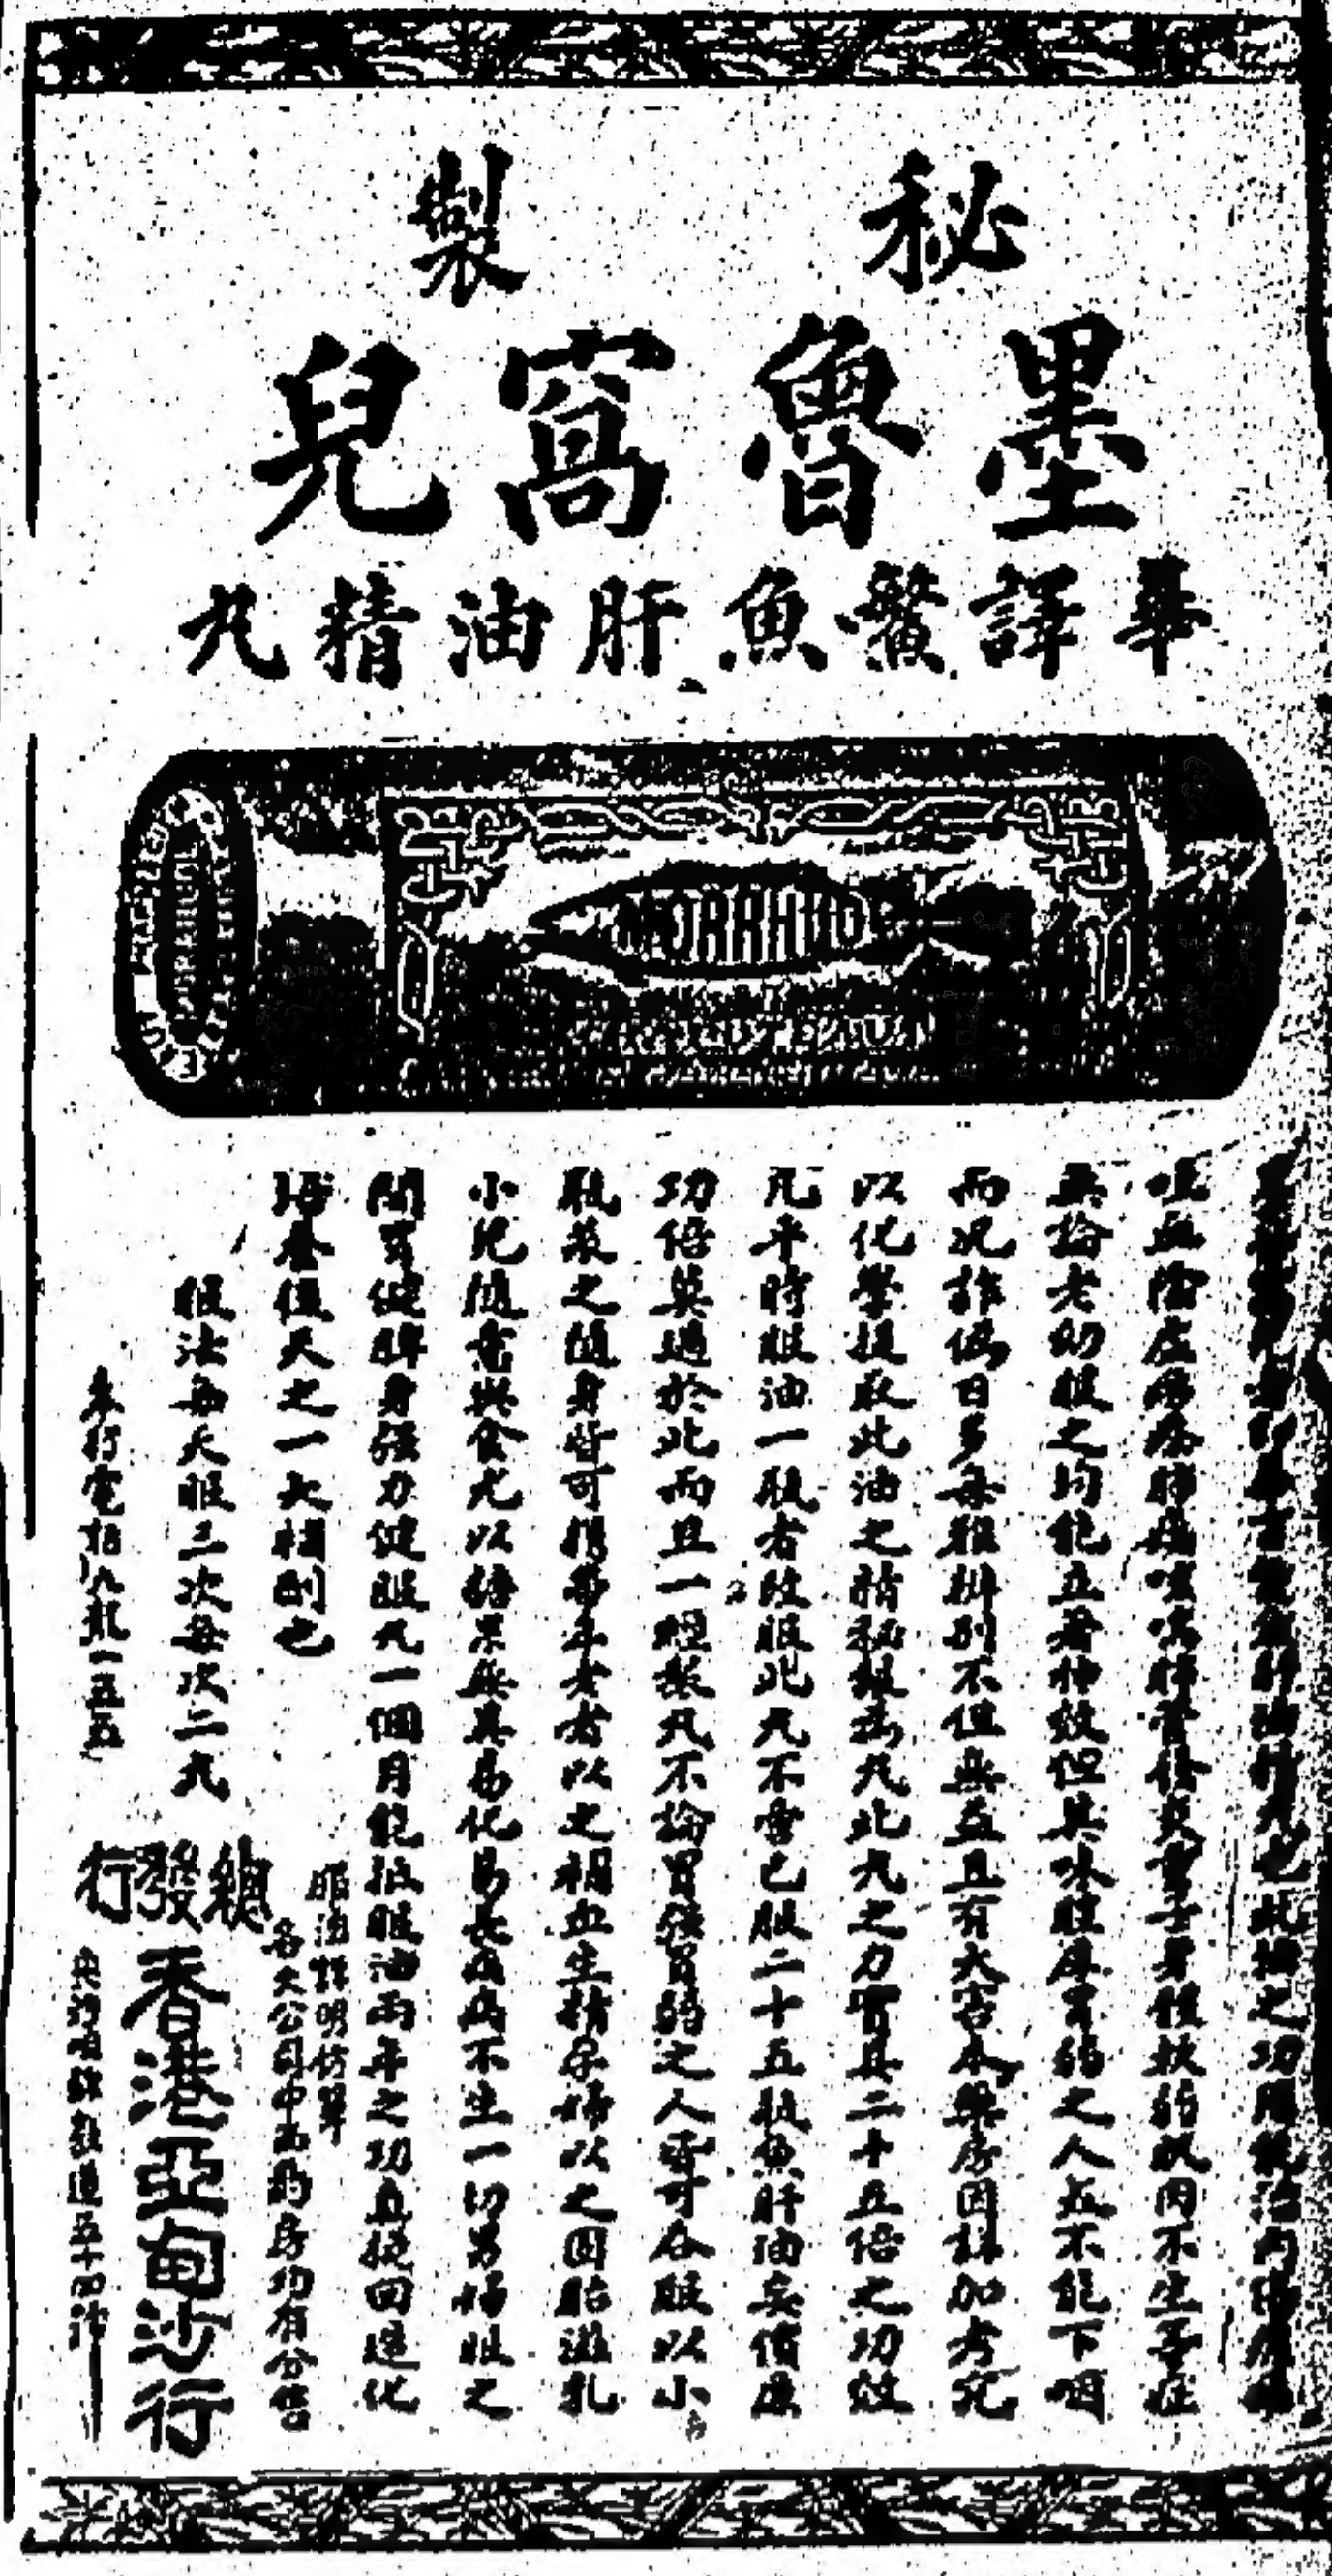 秘製
墨魯窩兒
華譯鰵魚肝油精丸
MORRHUOL
肝油精丸也此油之功用能治內傷
吐血陰虛癆瘵肺癆咳嗽肺管發炎童子身體軟弱肌肉不生等症
無論老幼服之均能立著神效但其味腥厚胃弱之人五不能下咽
而況詐偽日多每難辦別不但無益且有大害本藥房因詳加考究
以化學提取此油之精秘製為丸此丸之力實具二十五倍之功效
凡平時服油一瓶者改服此丸不啻已服二十五瓶魚肝油矣價廉
功倍莫過於此而且一經製丸不論胃強胃弱之人皆可吞服以小
瓶裝之隨身皆可携帶年老者以之補血生精孕婦以之固胎滋乳
小兒隨意與食尤以糖果無異易化易長疾病不生一切男婦服之
開胃健脾身強力健服丸一個月能抵服油兩年之功真挽回造化
培養後天之一大補劑也
服法每天服三次每次二丸
服法詳明仿單
各大公司中西藥房均有分售
總發行
香港亞甸沙行
打電話一五五
道五十四號